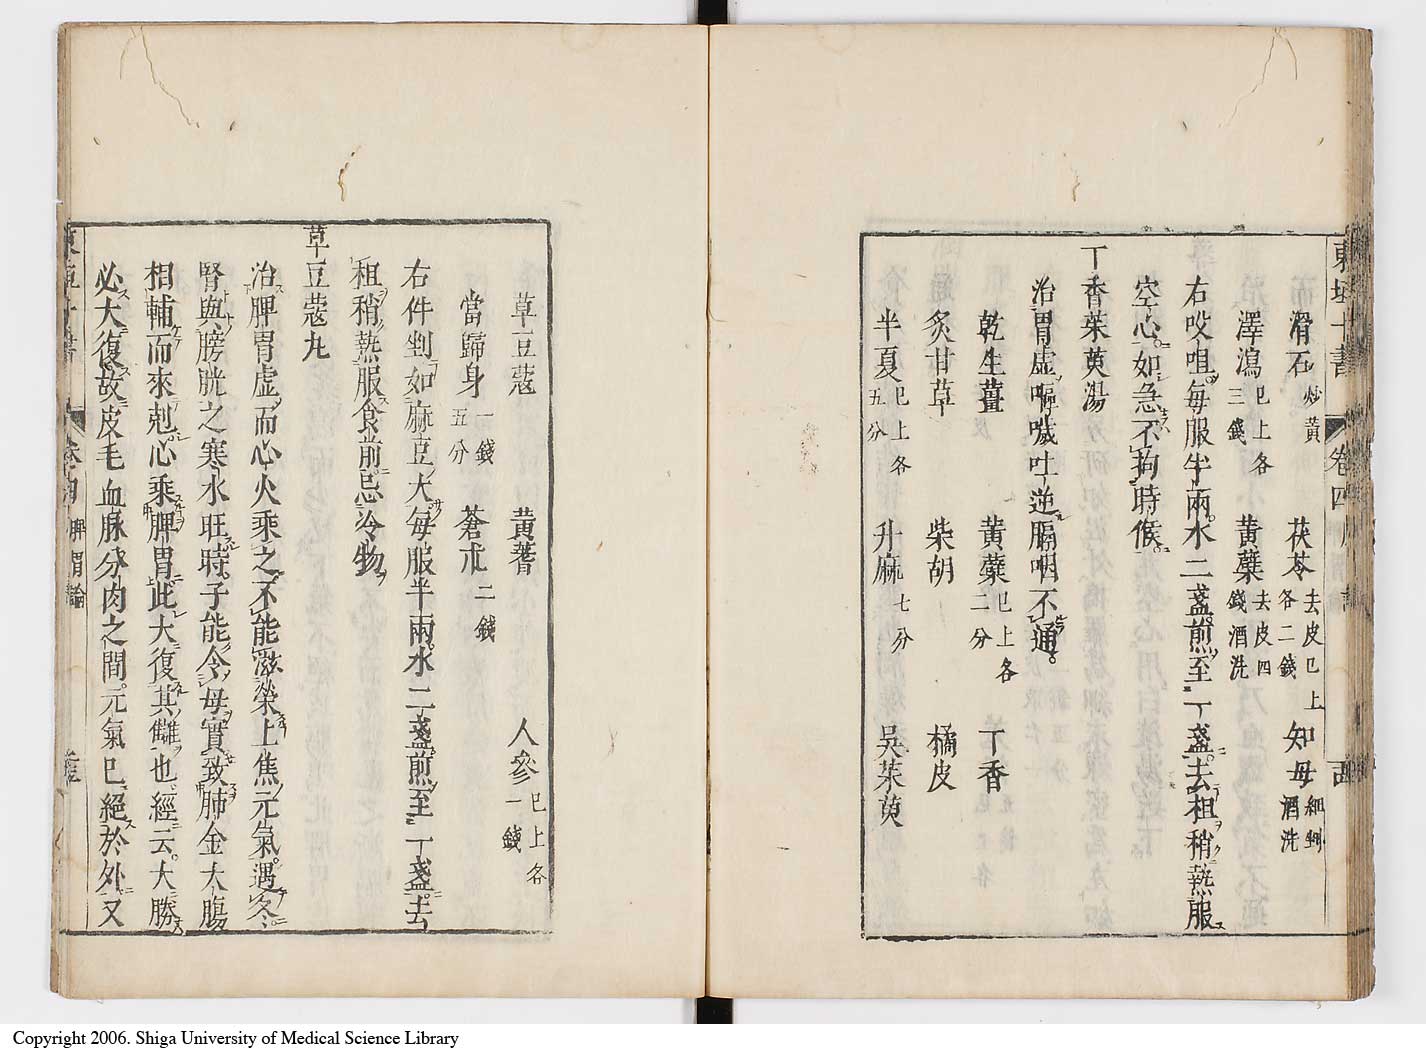 東垣十書 卷四
滑石炒黃 茯苓去皮已上各二錢 知母細剉酒洗
澤瀉已上各三錢 黃蘗去皮四錢酒洗
右㕮咀每服半兩水二盞煎至一盞去柤稍熱服
空心如急不拘時候
丁香茱萸湯
治胃虛嘔噦吐逆膈咽不通
乾生薑 黃蘗已上各二分 丁香
炙甘草 柴胡 橘皮
半夏已上各五分 升麻七分 吳茱萸
草豆蔻 黃蓍 人參已上各一錢
當歸身一錢五分 蒼朮二錢
右件剉如麻豆大每服半兩水二盞煎至一盞去
柤稍熱服食前忌冷物
草豆蔻丸
治脾胃虚而心火乘之不能滋榮上焦元氣遇冬
腎與膀胱之寒水旺時子能令母實致肺金大腸
相輔而來剋心乘脾胃此大復其讎也經云大勝
必大復故皮毛血脉分肉之間元氣已絕於外又
東垣十書 卷四 脾胃論
Copyright 2006. Shiga University of Medical Science Library